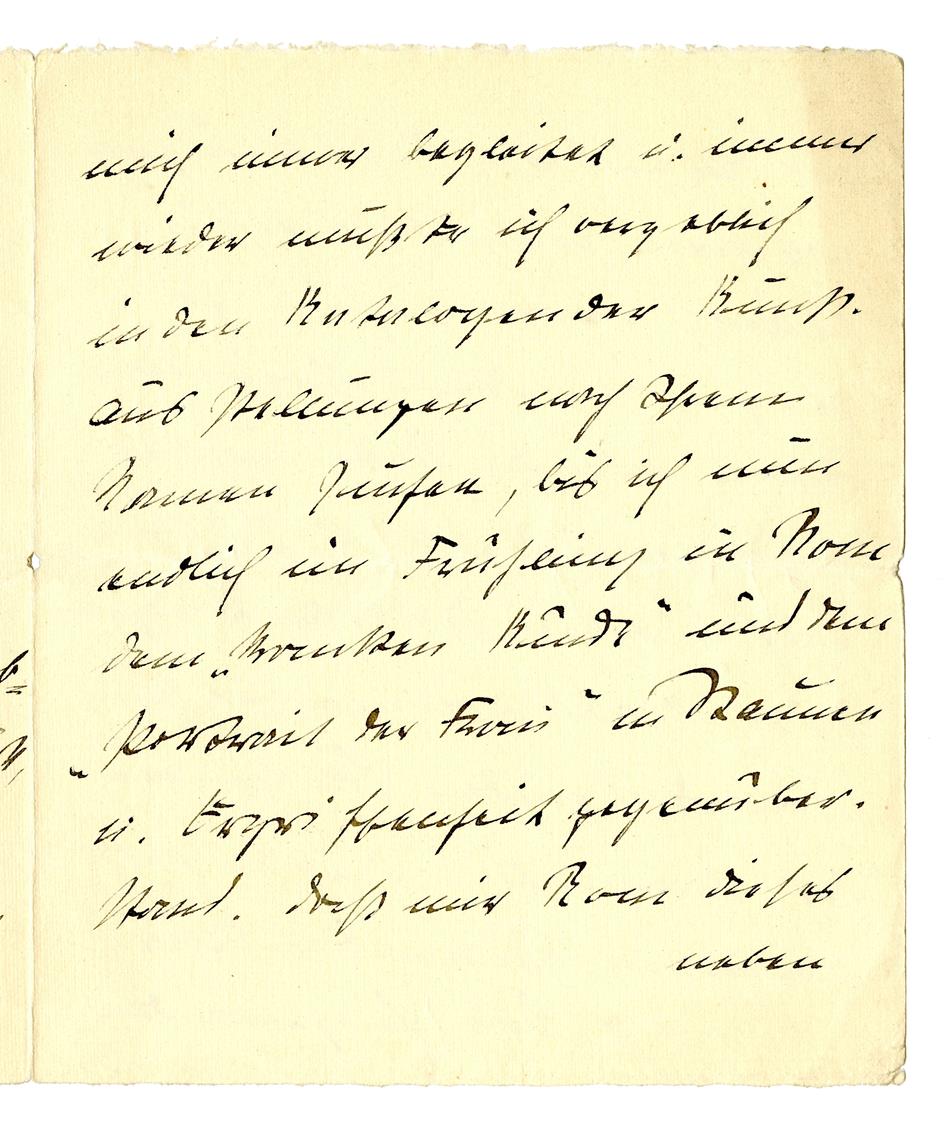 mich immer begleitet u. immer
wieder mußte ich vergeblich
in den Katalogen der Kunst-
ausstellungen nach Ihrem
Namen suchen, bis ich nun
endlich im Frühling in Rom
dem „Kranken Kinde“ und dem
„Portrait der Frau“ in Staunen
u. Ergriffenheit gegenüber-
stand. Daß mir Rom dieses
neben